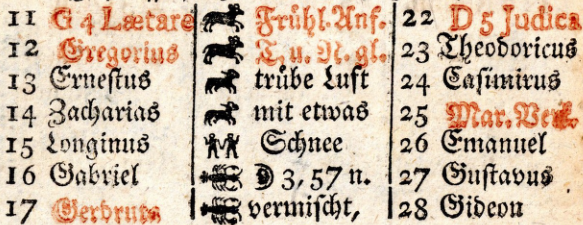 11 G 4 Lætare Frühl. Anf. 22 D 5 Judica
12 Gregorius T. u. N. gl. 23 Theodoricus
13 Ernestus trübe Luft 24 Casimirus
14 Zacharias mit etwas 25 Mar. Verk.
15 Longinus Schnee 26 Emanuel
16 Gabriel 3, 57 n. 27 Gustavus
17 Gerdruta vermischt, 28 Gideon